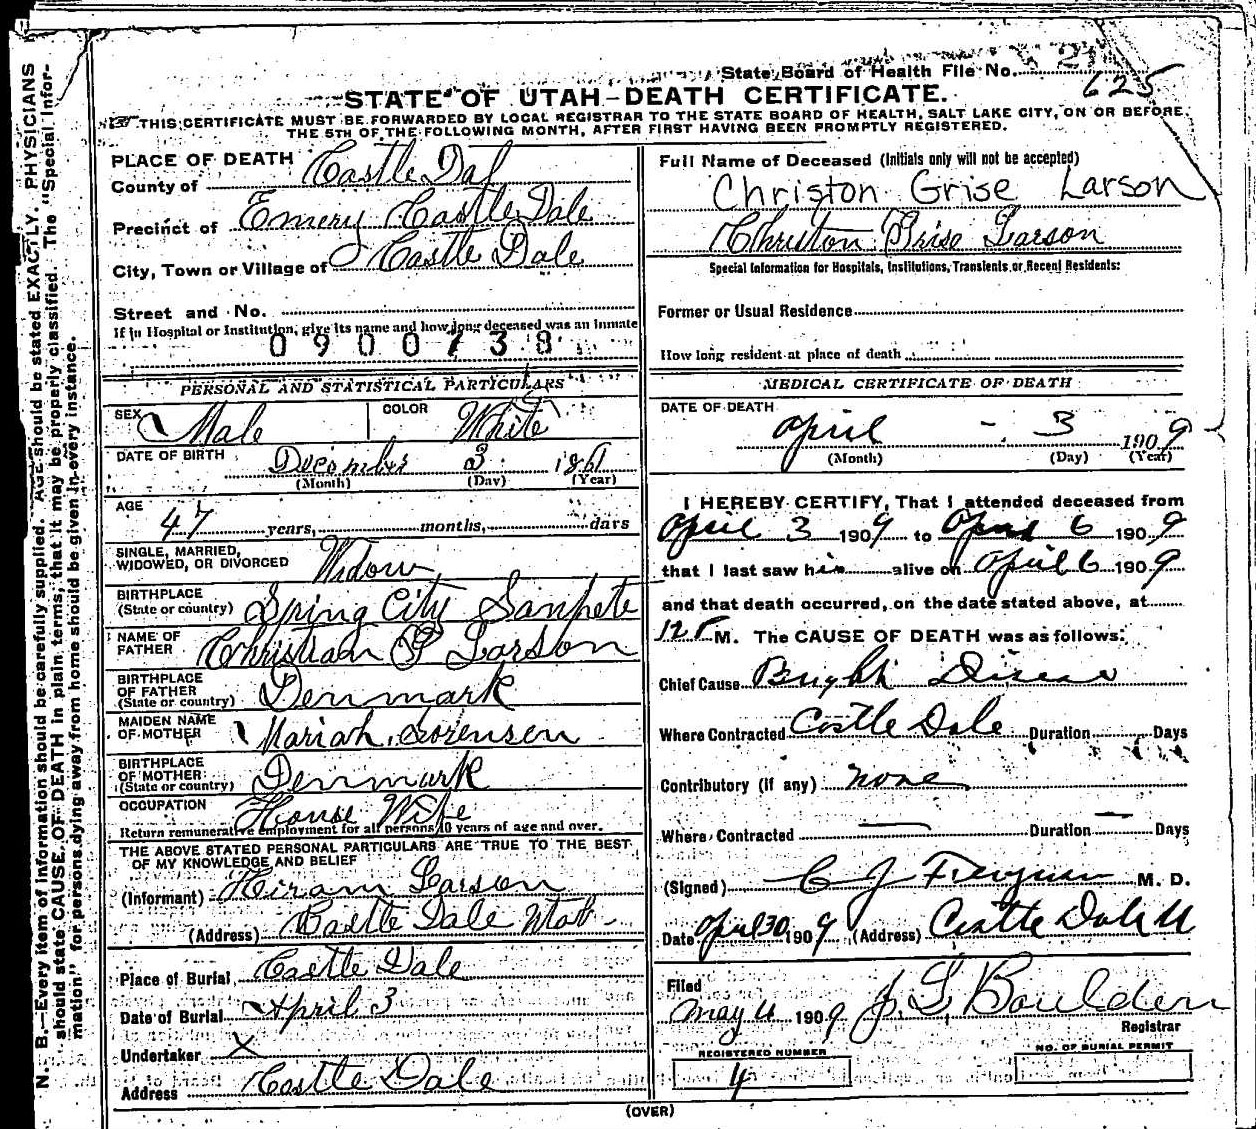 N. B.—Every item of information should be carefully supplied. AGE should be stated EXACTLY. PHYSICIANS
should state CAUSE OF DEATH in plain terms, that it may be properly classified. The "Special Infor-
mation" for persons dying away from home should be given in every instance.
State Board of Health File No.
625
STATE OF UTAH—DEATH CERTIFICATE.
THIS CERTIFICATE MUST BE FORWARDED BY LOCAL REGISTRAR TO THE STATE BOARD OF HEALTH, SALT LAKE CITY, ON OR BEFORE
THE 5TH OF THE FOLLOWING MONTH, AFTER FIRST HAVING BEEN PROMPTLY REGISTERED.
PLACE OF DEATH
County of Castle Dal
Precinct of Emery Castle Dale
City, Town or Village of Castle Dale
Street and No.
If in Hospital or Institution, give its name and how long deceased was an inmate
0900738
PERSONAL AND STATISTICAL PARTICULARS
SEX Male COLOR White
DATE OF BIRTH December 3 1861
(Month) (Day) (Year)
AGE
47 years, months, days
SINGLE, MARRIED,
WIDOWED, OR DIVORCED Widow
BIRTHPLACE
(State or country) Spring City Sanpete
NAME OF
FATHER Christian P Larson
BIRTHPLACE
OF FATHER
(State or country) Denmark
MAIDEN NAME
OF MOTHER Mariah Sorensen
BIRTHPLACE
OF MOTHER
(State or country) Denmark
OCCUPATION House Wife
Return remunerative employment for all persons 10 years of age and over.
THE ABOVE STATED PERSONAL PARTICULARS ARE TRUE TO THE BEST
OF MY KNOWLEDGE AND BELIEF
(Informant) Hiram Larson
(Address) Castle Dale Utah
Place of Burial Castle Dale
Date of Burial April 3
Undertaker X
Address Castle Dale
Full Name of Deceased (Initials only will not be accepted)
Christon Grise Larson
Christon Grise Larson
Special Information for Hospitals, Institutions, Transients or Recent Residents:
Former or Usual Residence
How long resident at place of death
MEDICAL CERTIFICATE OF DEATH
DATE OF DEATH
April - 3 1909
(Month) (Day) (Year)
I HEREBY CERTIFY, That I attended deceased from
April 3 1909 to April 6 1909
that I last saw him alive on April 6 1909
and that death occurred, on the date stated above, at
12 P M. The CAUSE OF DEATH was as follows:
Chief Cause Brights Disease
Where Contracted Castle Dale Duration Days
Contributory (if any) none
Where Contracted — Duration — Days
(Signed) C J Ferguson M. D.
Date April 30 1909 (Address) Castle Dale U
Filed
May 4 1909 J. L. Boulden
Registrar
REGISTERED NUMBER
4
NO. OF BURIAL PERMIT
(OVER)